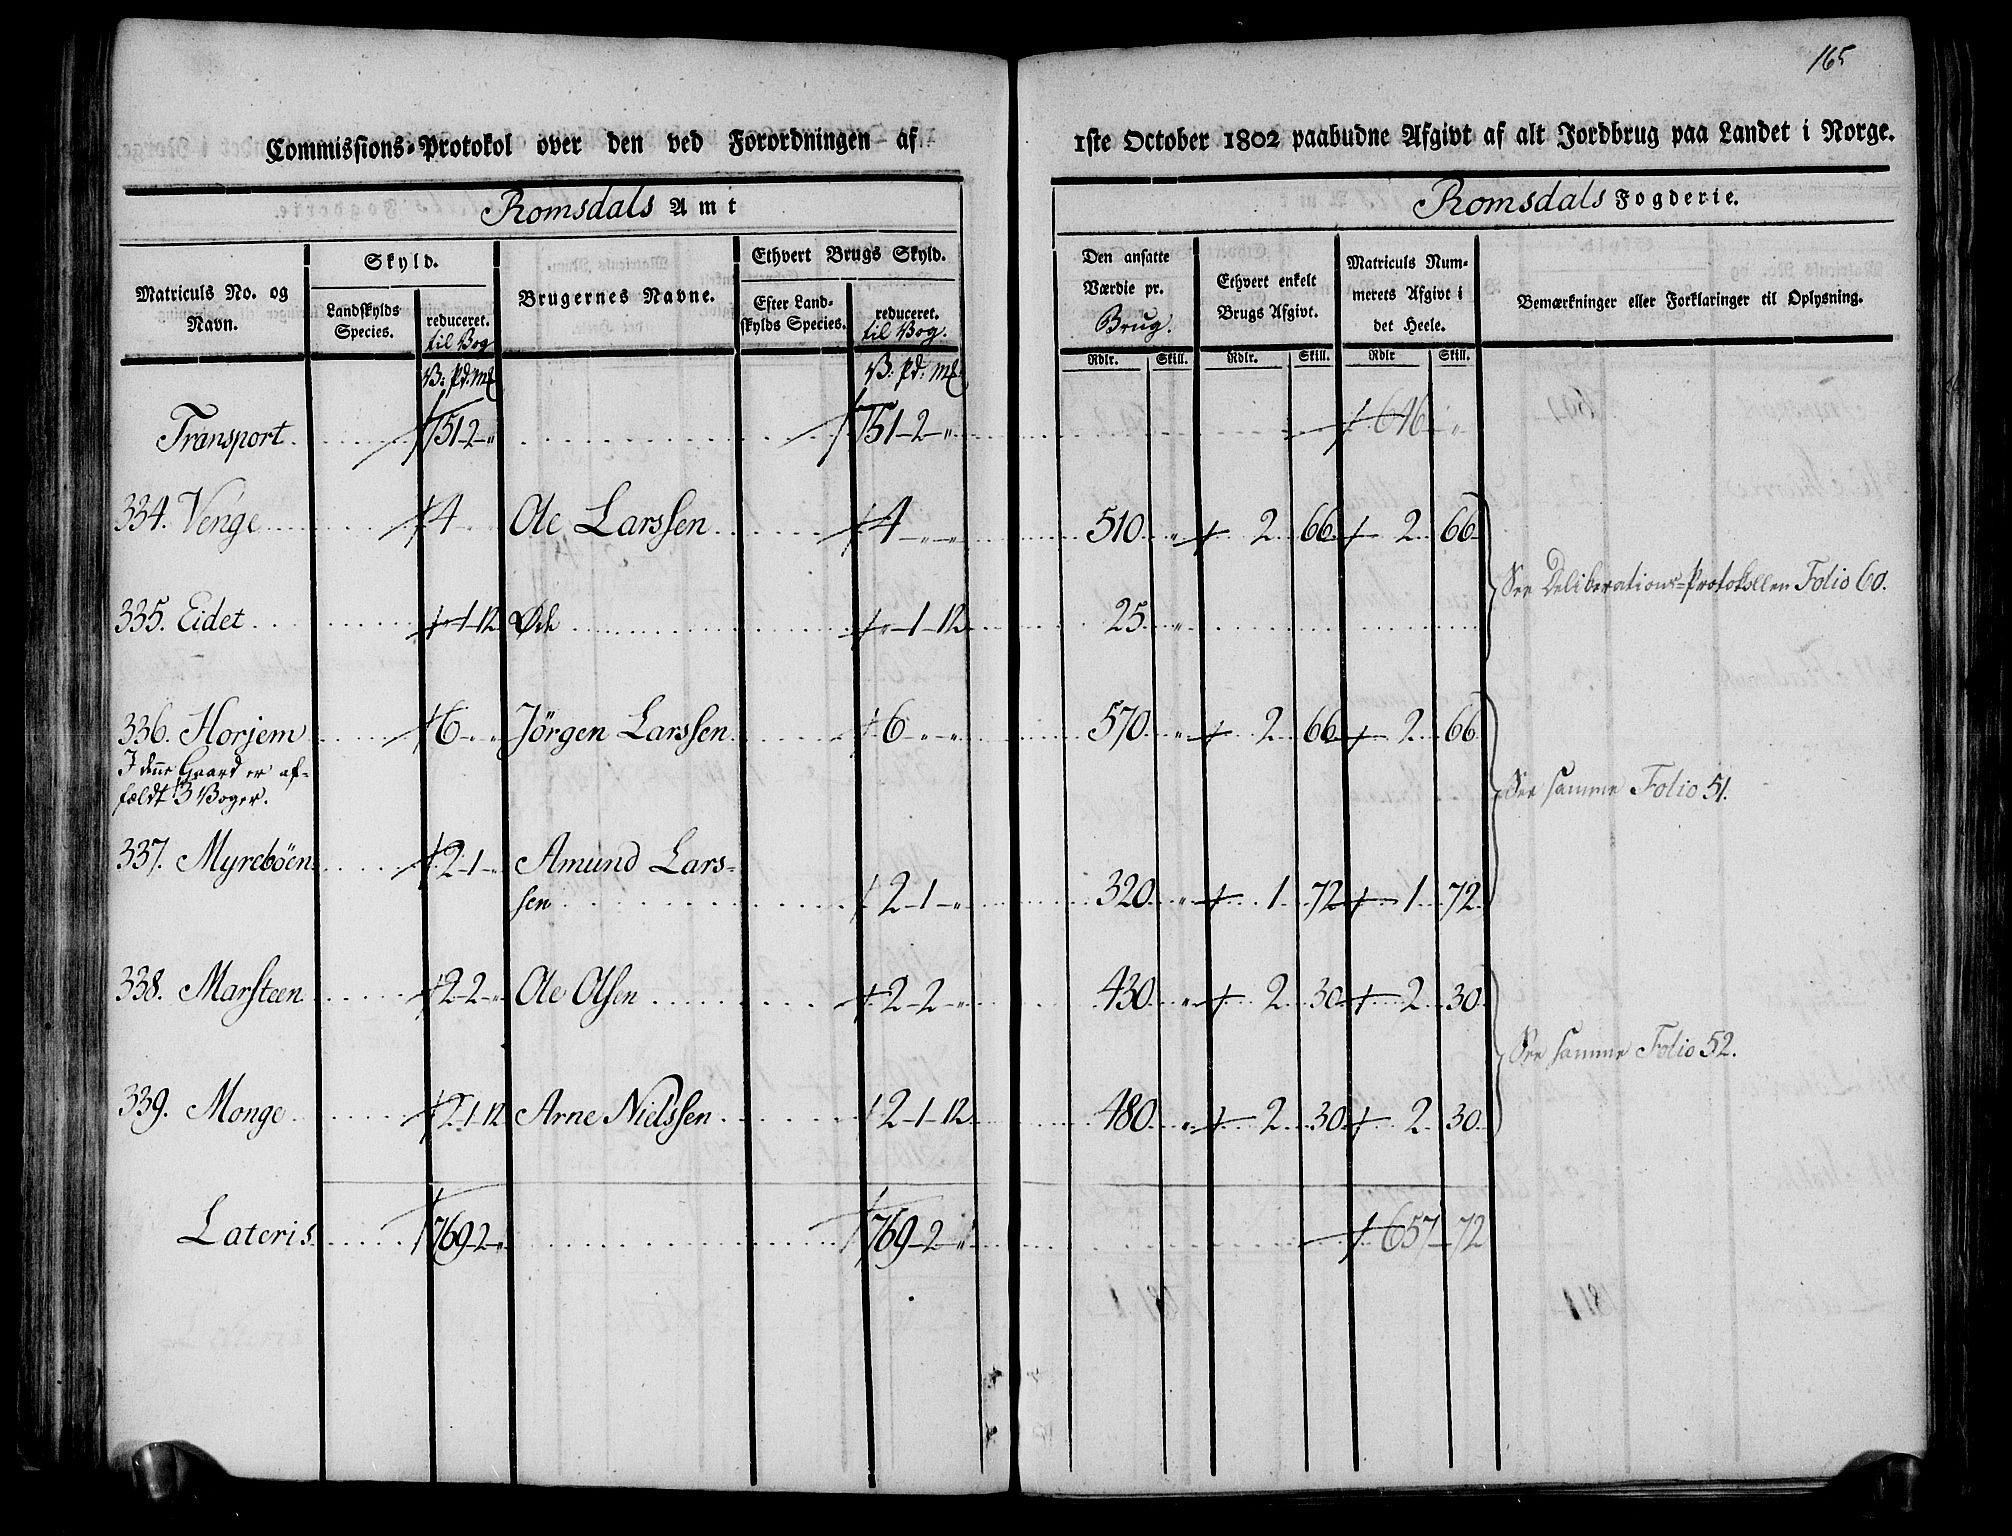 165
Commissions-Protokol over den ved Forordningen af 1ste October 1802 paabudne Afgivt af alt Jordbrug paa Landet i Norge.
Romsdals Amt
Romsdals Fogderie.
Matriculs No. og Navn.
Skyld.
Landskylds Species.
reduceret. til Vog
Brugernes Navne.
Ethvert Brugs Skyld.
Efter Landskylds Species.
reduceret. til Vog.
Den ansatte Værdie pr. Brug.
Ethvert enkelt Brugs Afgivt.
Matriculs Nummerets Afgivt i det Heele.
Bemærkninger eller Forklaringer til Oplysning.
V: Pd: Mk V: Pd: Mk Rdlr. Skill. Rdlr. Skill. Rdlr Skill.
Transport 751-2-" 751-2-" 646 "
334. Venge 4 Ole Larssen 4-"-" 510 " 2 66 2 66
See Deliberations-Protokollen Folio 60.
335. Eidet 1-12 Øde "-1-12 25 "
336. Horjem 6 " " Jörgen Larssen 6 " " 570 " 2 66 2 66
I denne Gaard er af-
fældt 3 Voger.
See samme Folio 51.
337. Myreböen 2-1-" Amund Lars-
sen 2-1-" 320 " 1 72 1 72
338. Marsteen 2-2-" Ole Olsen 2-2-" 430 " 2 30 2 30
See samme Folio 52.
339. Monge 2-1-12 Arne Nielssen 2-1-12 480 " 2 30 2 30
Lateris 769-2-" 769-2-" 657 72